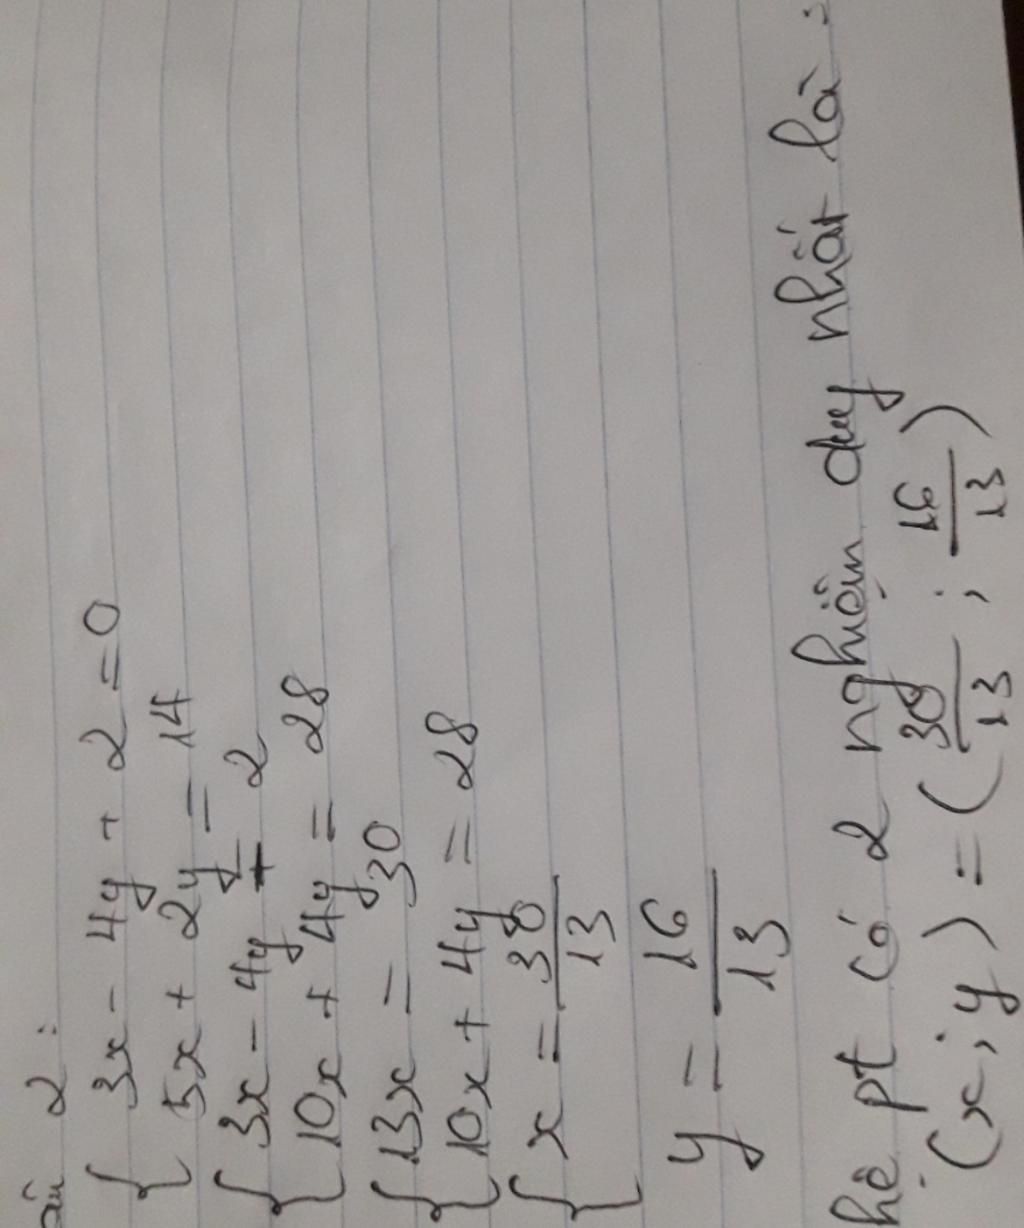 Câu 2:
{ 3x - 4y + 2 = 0
5x + 2y = 14
{ 3x - 4y = 2
10x + 4y = 28
{ 13x = 30
10x + 4y = 28
{ x = 30/13
y = 16/13
hệ pt có 2 nghiệm duy nhất là :
(x ; y) = (30/13 ; 16/13)